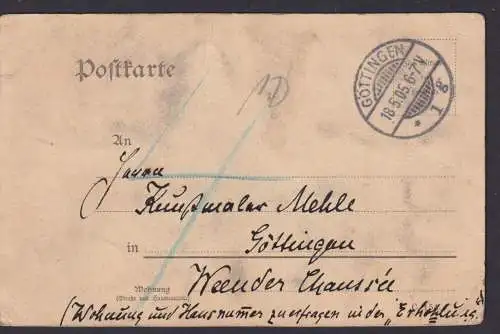 Postkarte
GÖTTINGEN
18.6.05.6-7V.
* 1 g
An
Herrn
Kunstmaler Mehle
in Göttingen
Wohnung
(Straße und Hausnummer)
Weender Chaussée
(Wohnung und Hausnummer zu erfragen in der „Erholung“)